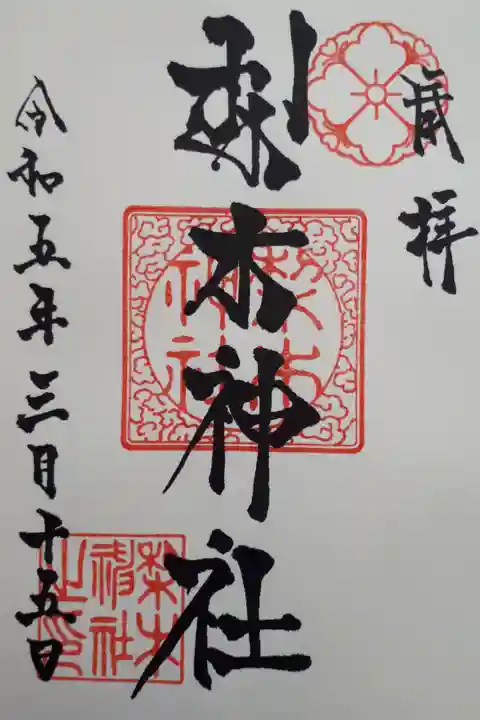 拝
梨木神社
梨木
神社
梨木
神社
之印
令和五年三月十五日